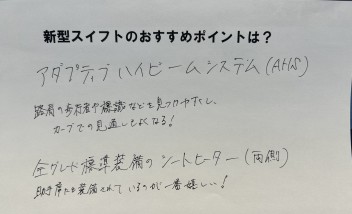 新型スイフトのおすすめポイントは?
アダプティブハイビームシステム(AHS)
路肩の歩行者や標識などを見つけやすく、
カーブでの見通しもよくなる!
全グレード標準装備のシートヒーター(両側)
助手席にも装備されているのが一番嬉しい!